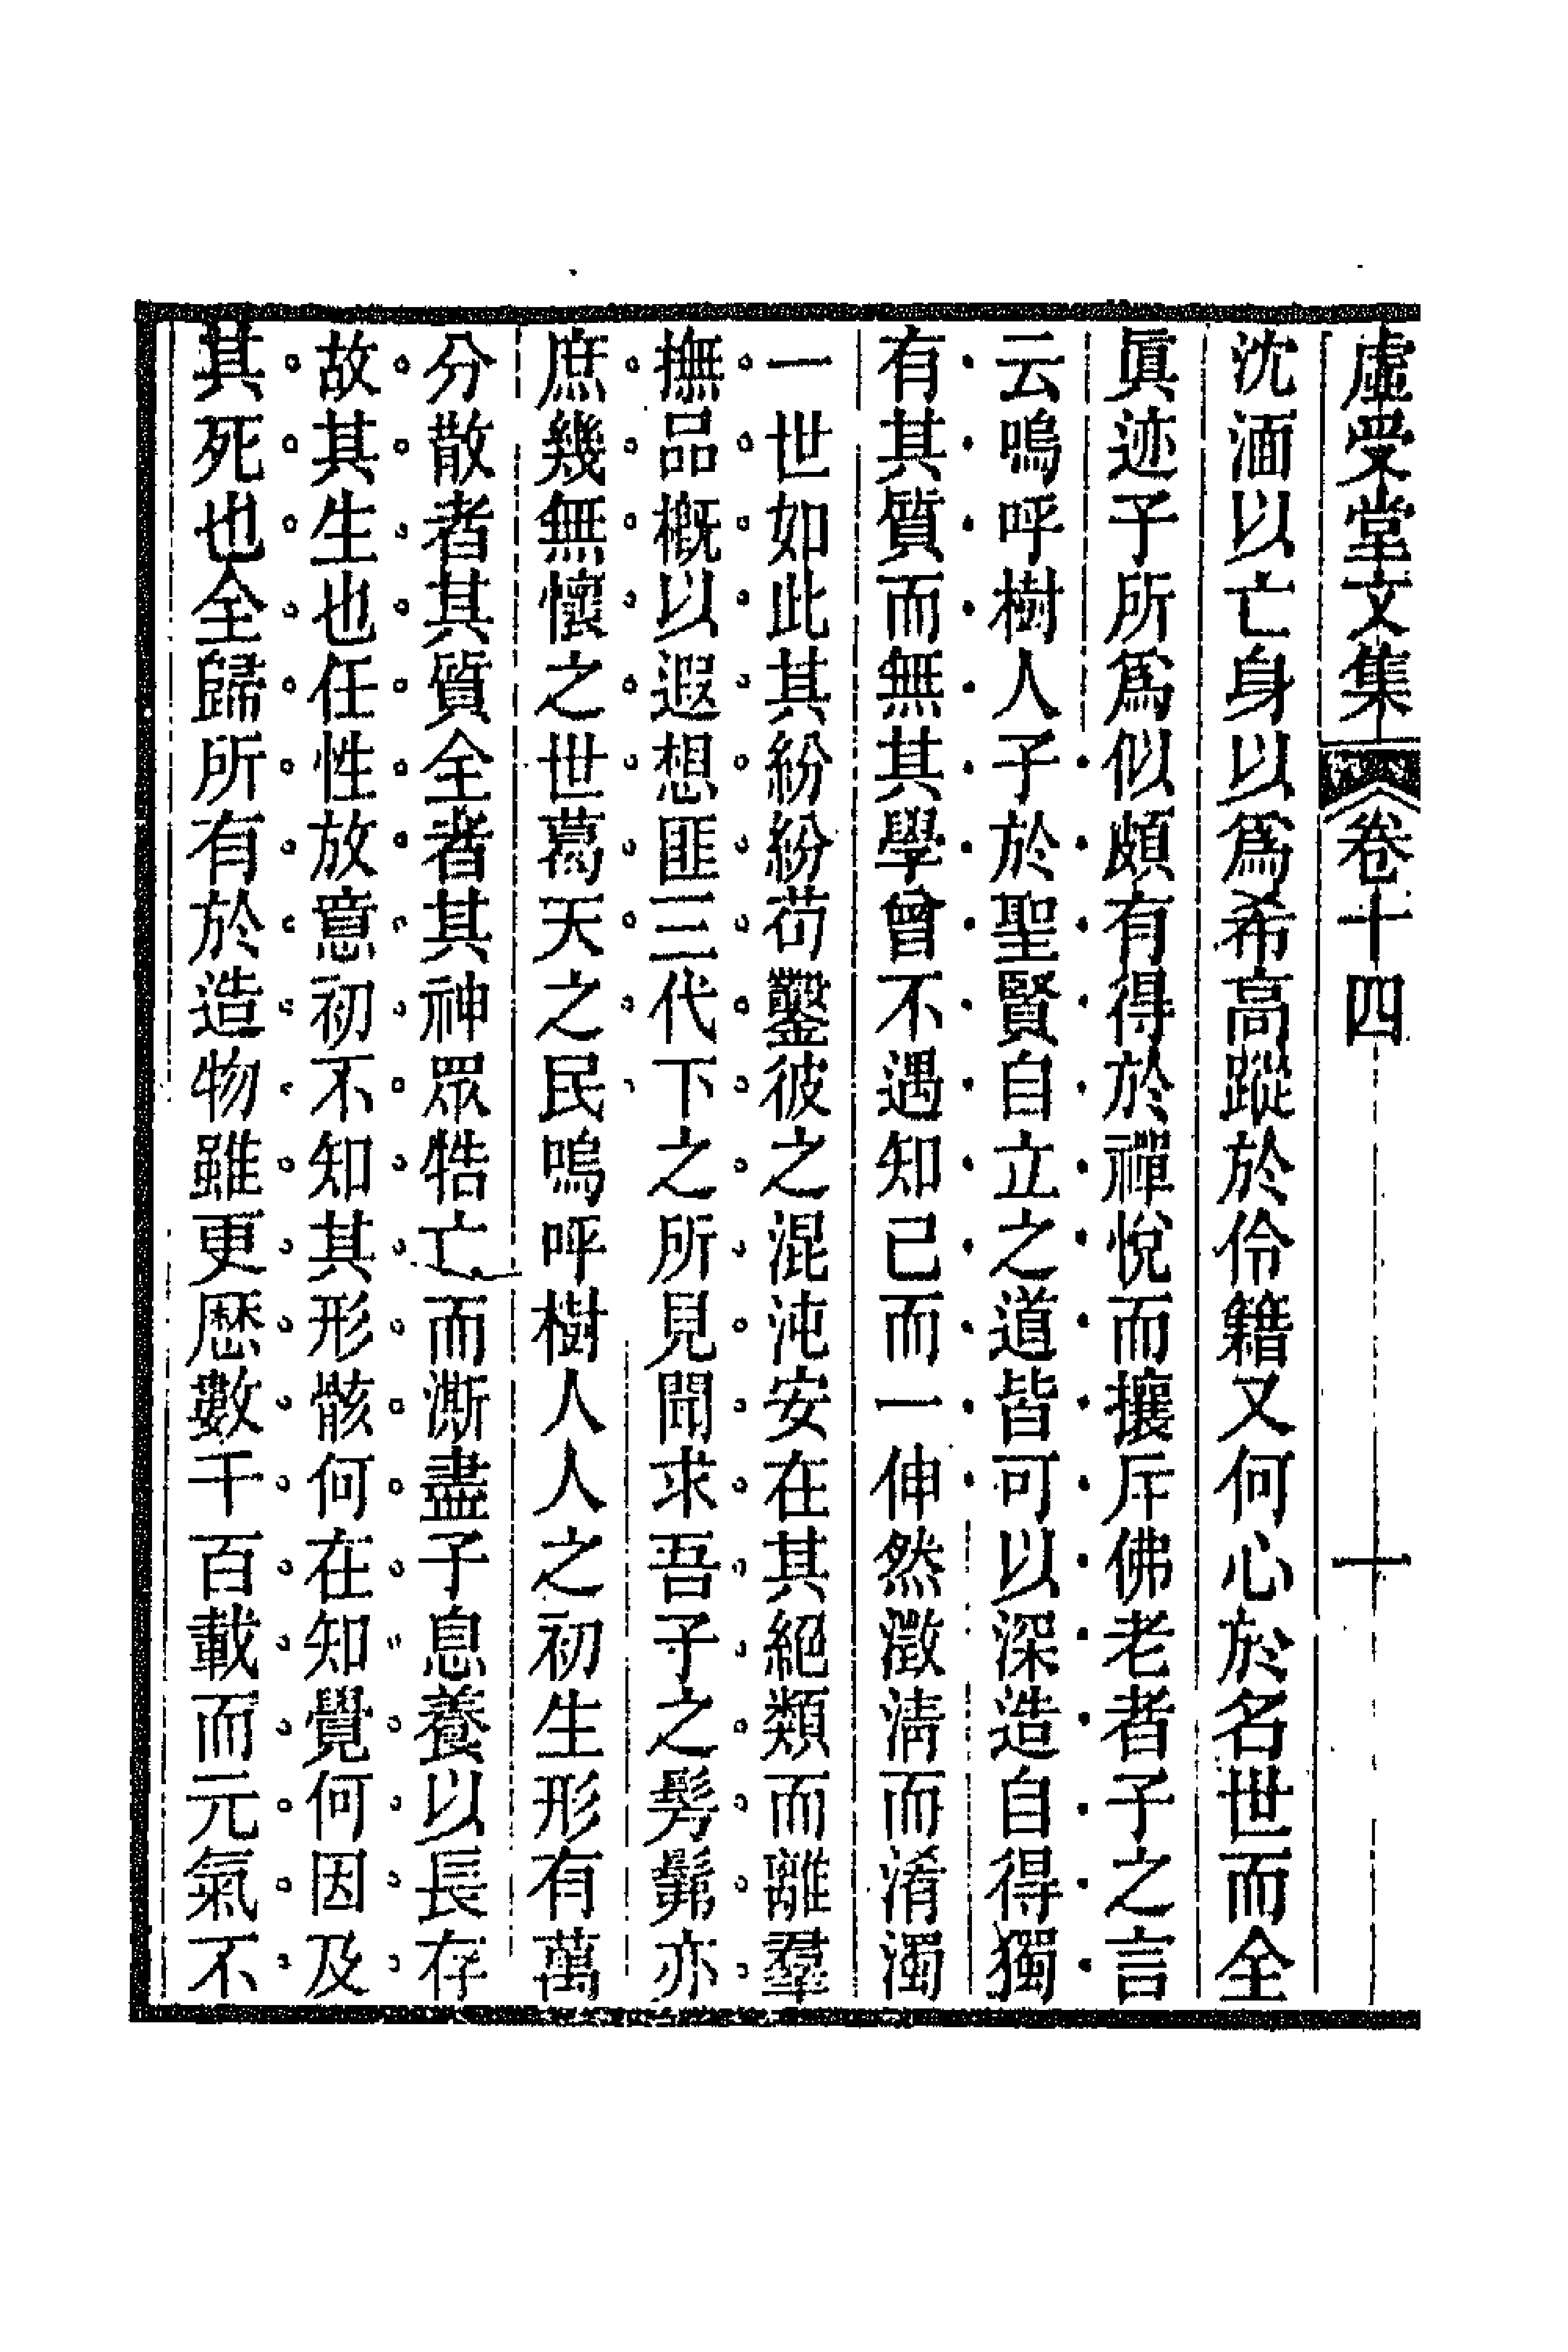 虛受堂文集 卷十四 十
沈湎以亡身以爲希高蹤於伶籍又何心於名世而全
眞迹予所爲似頗有得於禪悅而攘斥佛老者予之言
云嗚呼樹人子於聖賢自立之道皆可以深造自得獨
有其質而無其學曾不遇知己而一伸然澂淸而淆濁
一世如此其紛紛苟鑿彼之混沌安在其絕類而離羣
撫品槪以遐想匪三代下之所見聞求吾子之髣髴亦
庶幾無懷之世葛天之民嗚呼樹人人之初生形有萬
分散者其質全者其神眾牿亡而澌盡子息養以長存
故其生也任性放意初不知其形骸何在知覺何因及
其死也全歸所有於造物雖更歷數千百載而元氣不